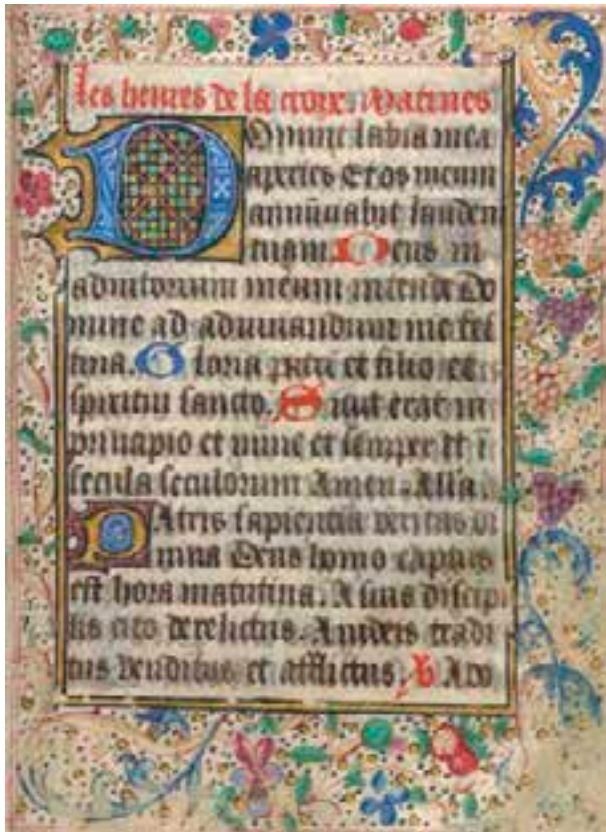 les heures de la croix. Matines
Domine labia mea
aperies Et os meum
annūtiabit laudem
tuam. Deus in
adiutorium meum intende Do
mine ad adiuuandum me fes
tina. Gloria patri et filio et
spiritui sancto. Sicut erat in
principio et nunc et semper et ī
secula seculorum Amen. Alla.
Patris sapientia veritas di
uina Deus homo captus
est hora matutina. A suis discip
lis cito derelictus. A iudeis tradi
tus venditus et afflictus.